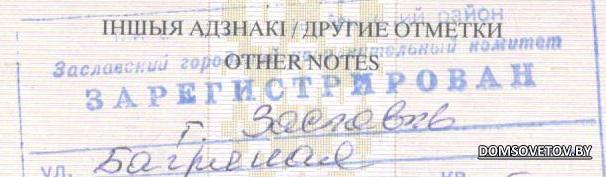 район
ІНШЫЯ АДЗНАКІ / ДРУГИЕ ОТМЕТКИ
Заславский городской исполнительный комитет
OTHER NOTES
ЗАРЕГИСТРИРОВАН
г. Заславль
ул. Багряная кв.
DOMSOVETOV.BY